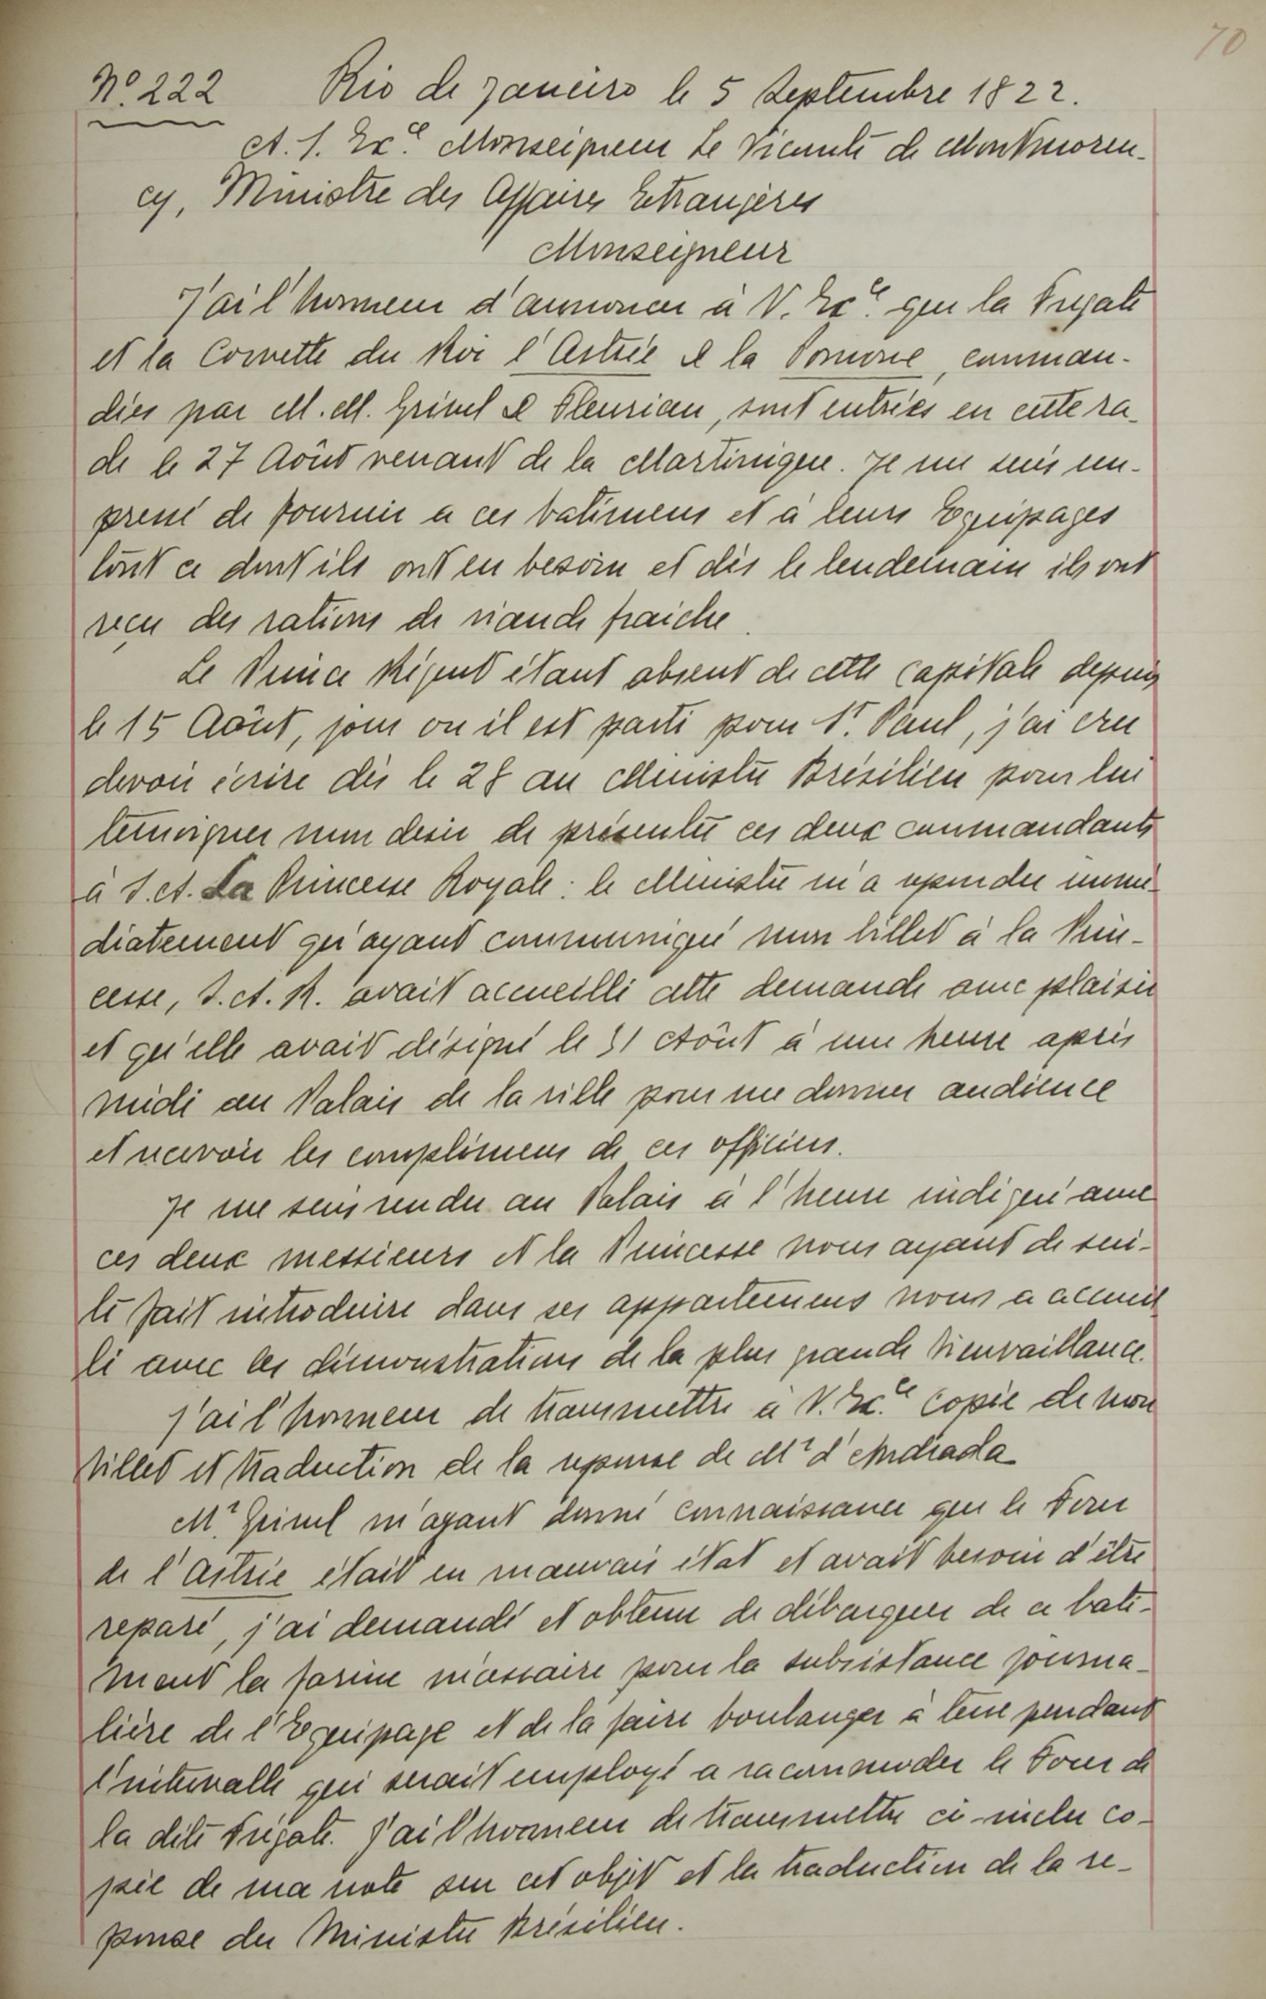 70
Nº. 222 Rio de Janeiro le 5 Septembre 1822.
A. S. Exce. Monseigneur Le Vicomte de Montmoren-
cy, Ministre des Affaires Etrangères
Monseigneur
J'ai l'honneur d'annoncer à V. Exce. que la Fregate
et la Corvette du Roi l'Astrée & la Pomone, comman-
dées par M. M. Grivel & Fleuriau, sont entrées en cette ra-
de le 27 Août venant de la Martinique. Je me suis em-
pressé de fournir a ces batimens et à leurs Equipages
tout ce dont ils ont eu besoin et dès le lendemain ils ont
reçu des rations de viande fraiche.
Le Prince Régent étant absent de cette capitale depuis
le 15 Août, jour ou il est parti pour St. Paul, j'ai cru
devoir écrire dès le 28 au Ministre Brésilien pour lui
temoigner mon desir de présenter ces deux commandants
à S. A. La Princesse Royale: le Ministre m'a repondu immé-
diatement qu'ayant communiqué mon billet à la Prin-
cesse, S. A. R. avait accueilli cette demande avec plaisir
et qu'elle avait désigné le 31 Août à une heure après
midi au Palais de la ville pour me donner audience
et recevoir les complimens de ces officiers.
Je me suis rendu au Palais à l'heure indiquée avec
ces deux messieurs et la Princesse nous ayant de sui-
te fait introduire dans ses appartemens nous a accueil
li avec les démonstrations de la plus grande bienvaillance.
J'ai l'honneur de transmettre à V. Exce. copie de mon
billet et traduction de la reponse de Mr d'Andrada
Mr. Grivel m'ayant donné connaissance que le Four
de l'Astrée était en mauvais état et avait besoin d'être
reparé, j'ai demandé et obtenu de débarquer de ce bati-
ment la farine nécessaire pour la subsistance journa-
lière de l'Equipage et de la faire boulanger à terre pendant
l'intervalle qui serait employé a racommoder le Four de
la dite Frégate. J'ai l'honneur de transmettre ci-inclu co-
pie de ma note sur cet objet et la traduction de la re-
ponse du Ministre Brésilien.